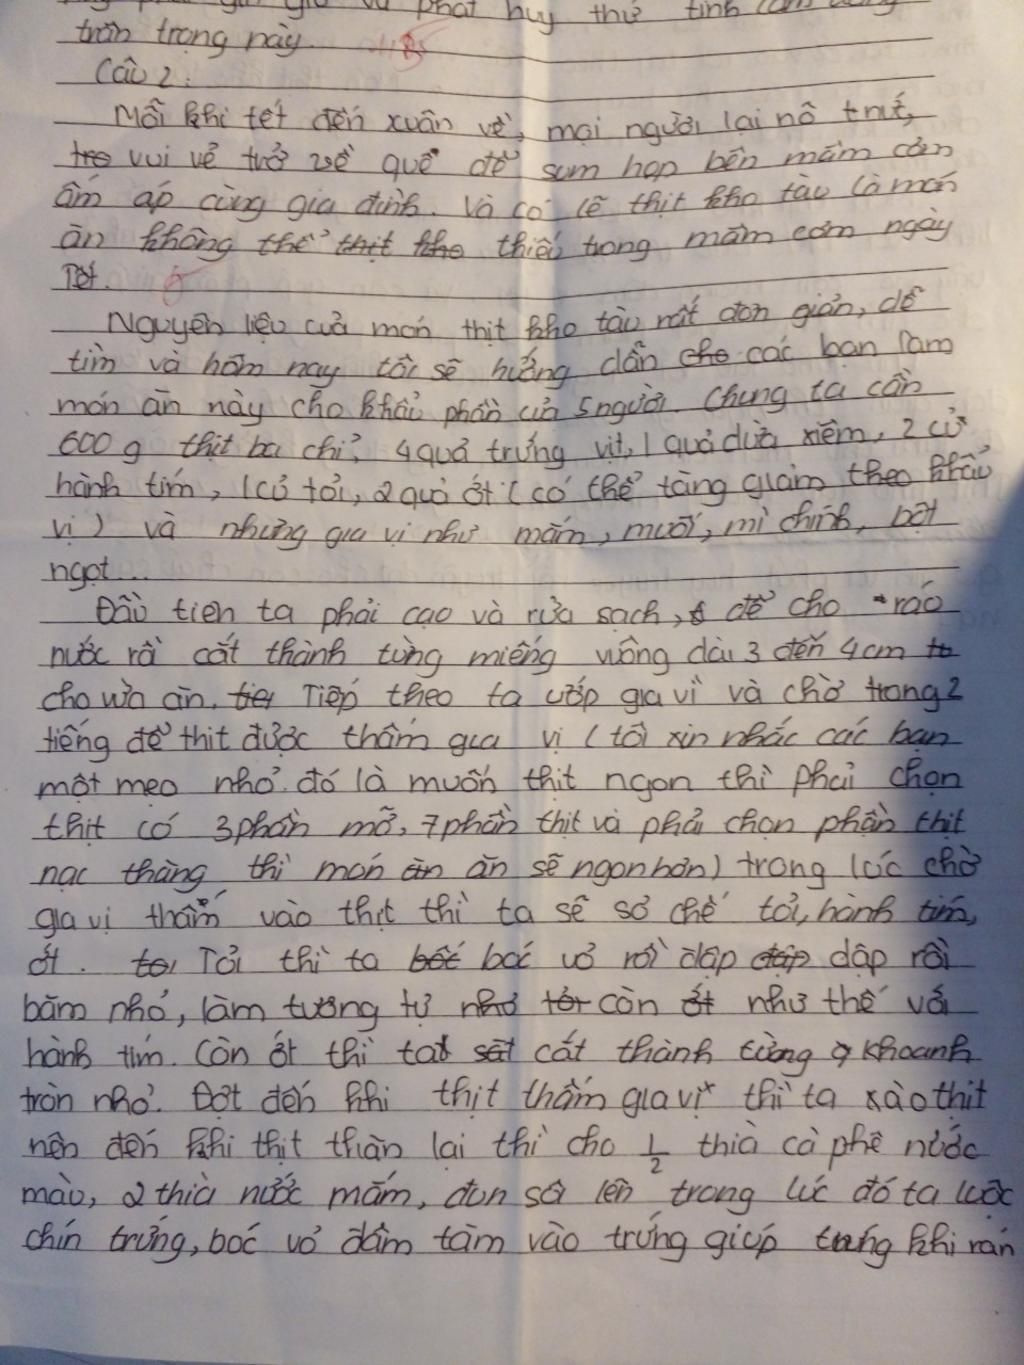 phát huy thứ tình cảm
trân trọng này.
Câu 2:
Mỗi khi tết đến xuân về, mọi người lại nô trứt,
vui vẻ trở về quê để sum họp bên mâm cơm
ấm áp cùng gia đình. Và có lẽ thịt kho tàu là món
ăn không thể thiếu trong mâm cơm ngày
Tết.
Nguyên liệu của món thịt kho tàu rất đơn giản, dễ
tìm và hôm nay tôi sẽ hướng dẫn các bạn làm
món ăn này cho khẩu phần của 5 người. Chúng ta cần
600g thịt ba chỉ, 4 quả trứng vịt, 1 quả dừa xiêm, 2 củ
hành tím, 1 củ tỏi, 2 quả ớt (có thể tăng giảm theo khẩu
vị) và những gia vị như mắm, muối, mì chính, bột
ngọt...
Đầu tiên ta phải cạo và rửa sạch, để cho ráo
nước rồi cắt thành từng miếng vuông dài 3 đến 4cm
cho vừa ăn. Tiếp theo ta ướp gia vì và chờ trong 2
tiếng để thịt được thấm gia vị (tôi xin nhắc các bạn
một mẹo nhỏ đó là muốn thịt ngon thì phải chọn
thịt có 3 phần mỡ, 7 phần thịt và phải chọn phần thịt
nạc thăng thì món ăn sẽ ngon hơn) trong lúc chờ
gia vị thấm vào thịt thì ta sẽ sơ chế tỏi, hành tím,
ớt. Tỏi thì ta bóc vỏ rồi đập dập rồi
băm nhỏ, làm tương tự như thế với
hành tím. Còn ớt thì ta cắt thành từng khoanh
tròn nhỏ. Đợt đến khi thịt thấm gia vị thì ta xào thịt
nên đến khi thịt thăn lại thì cho 1/2 thìa cà phê nước
màu, 2 thìa nước mắm, đun sôi lên trong lúc đó ta luộc
chín trứng, bóc vỏ đâm tăm vào trứng giúp trứng khi rán